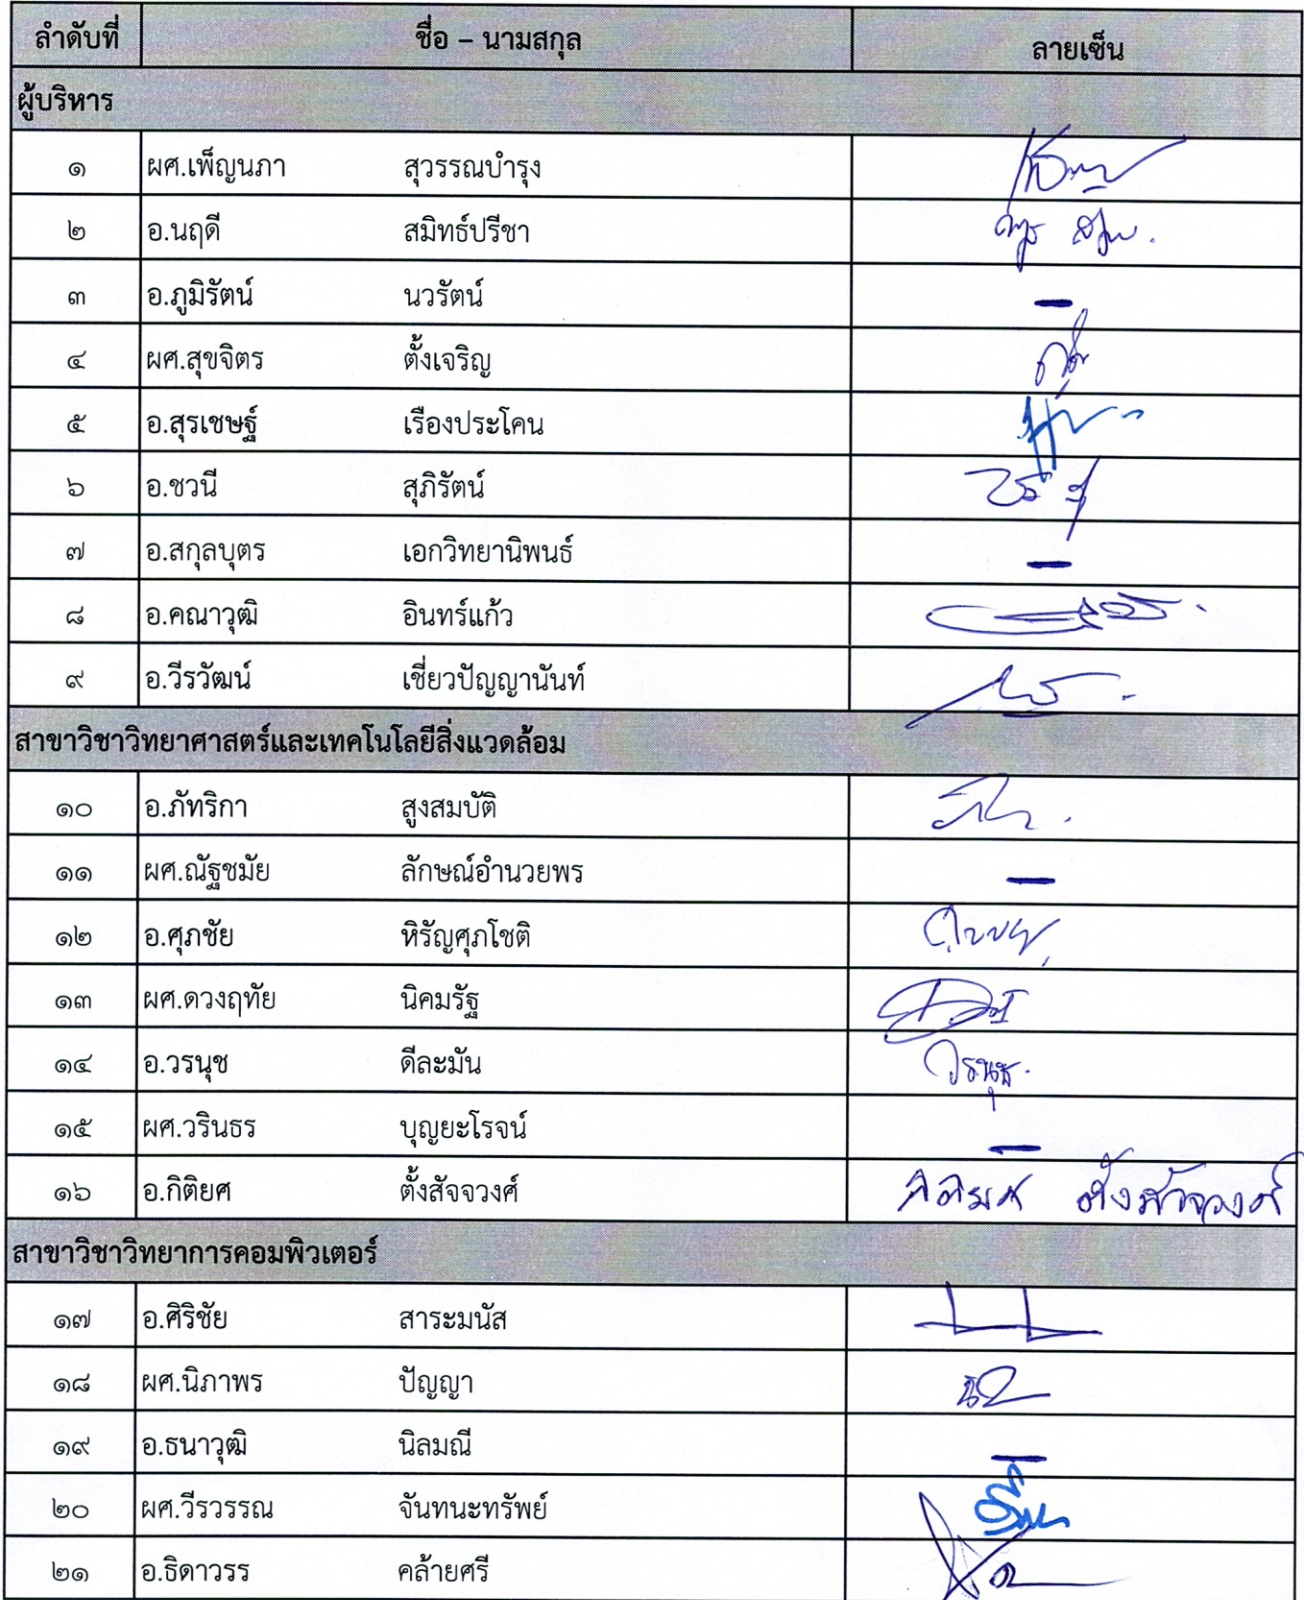 ลำดับที่ ชื่อ – นามสกุล ลายเซ็น
ผู้บริหาร
๑ ผศ.เพ็ญนภา สุวรรณบำรุง
๒ อ.นฤดี สมิทธ์ปรีชา
๓ อ.ภูมิรัตน์ นวรัตน์ –
๔ ผศ.สุขจิตร ตั้งเจริญ
๕ อ.สุรเชษฐ์ เรืองประโคน
๖ อ.ชวนี สุภิรัตน์
๗ อ.สกุลบุตร เอกวิทยานิพนธ์ –
๘ อ.คณาวุฒิ อินทร์แก้ว
๙ อ.วีรวัฒน์ เชี่ยวปัญญานันท์
สาขาวิชาวิทยาศาสตร์และเทคโนโลยีสิ่งแวดล้อม
๑๐ อ.ภัทริกา สูงสมบัติ
๑๑ ผศ.ณัฐชมัย ลักษณ์อำนวยพร –
๑๒ อ.ศุภชัย หิรัญศุภโชติ
๑๓ ผศ.ดวงฤทัย นิคมรัฐ
๑๔ อ.วรนุช ดีละมัน วรนุช
๑๕ ผศ.วรินธร บุญยะโรจน์ –
๑๖ อ.กิติยศ ตั้งสัจจวงศ์ กิติยศ ตั้งสัจจวงศ์
สาขาวิชาวิทยาการคอมพิวเตอร์
๑๗ อ.ศิริชัย สาระมนัส
๑๘ ผศ.นิภาพร ปัญญา
๑๙ อ.ธนาวุฒิ นิลมณี –
๒๐ ผศ.วีรวรรณ จันทนะทรัพย์
๒๑ อ.ธิดาวรร คล้ายศรี